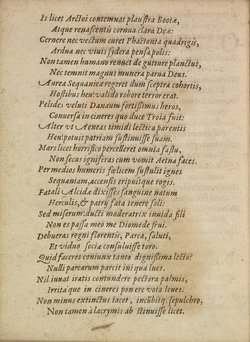 Is licet Arctoi contemnat plaustra Bootæ,
Atque renascentis cornua clara Deæ:
Cernere nec vectum curet Phaetonta quadrigis,
Ardua nec viuis sydera pensa polis:
Non tamen humano renuet de guiture planctus,
Nec temnit magnus munera parua Deus.
Aurea Sequanicæ regeret dum sceptra cohortis,
Hostibus heu valido robore terror erat.
Pelides veluti Danaum fortissimus heros,
Conuersa in cineres quo duce Troia fuit:
Alter vt Aeneas timidi lectica parentis
Heu potuit patriam sustinuisse suam.
Mars licet horrifico percelleret omnia fastu,
Non secus igniferas cum vomit Aetna faces.
Per medios humeris fœlicem sustulit ignes
Sequaniam, accensis eripuitque rogis.
Fatali Alcidæ dixisses sanguine natum
Herculis, & patrÿ fata tenere soli:
Sed miserum ducti moderatrix inuida fili
Non es passa meo me Diomede frui.
Debueras rogni florentis, Parca, saluti,
Et viduo socia consuluisse toro.
Quid faceret coniunx tanto dignissima lecto?
Nulli parcarum parcit iniqua lues.
Nil iuuat iratis contundere pectora palmis,
Irrita que in cineres ponere vota leues.
Non minus extinctus tacet, incubitq; sepulchro,
Non tamen à lacrymis abstimuisse licet.